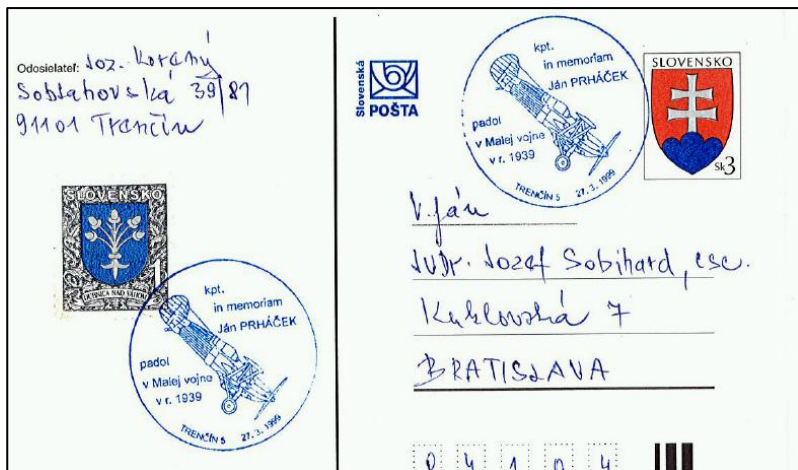 Odosielateľ: Joz. Koraný
Soblahovská 39/81
91101 Trenčín
SLOVENSKO
1
DUBNICA NAD VÁHOM
kpt.
in memoriam
Ján PRHÁČEK
padol
v Malej vojne
v r. 1939
TRENČÍN 5 27.3.1999
Slovenská
POŠTA
kpt.
in memoriam
Ján PRHÁČEK
padol
v Malej vojne
v r. 1939
TRENČÍN 5 27.3.1999
SLOVENSKO
Sk 3
V. pán
JUDr. Jozef Sobihard, csc.
Kuklovská 7
BRATISLAVA
84104